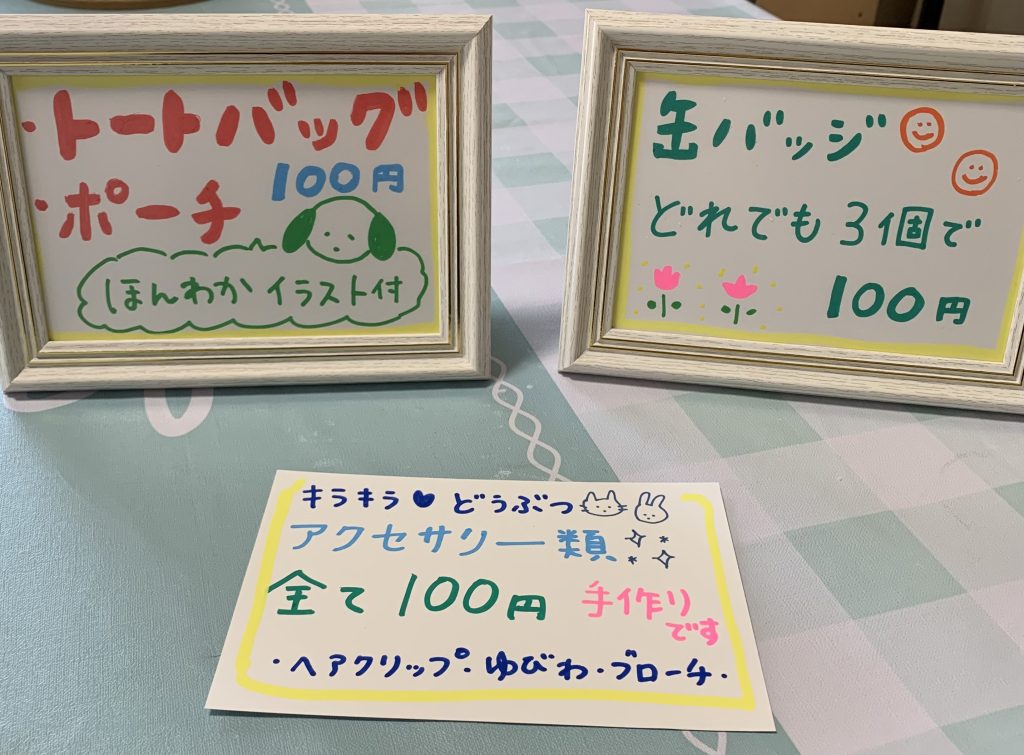 ・トートバッグ
・ポーチ 100円
ほんわかイラスト付
缶バッジ
どれでも3個で
100円
キラキラ♥どうぶつ
アクセサリー類
全て100円 手作りです
・ヘアクリップ・ゆびわ・ブローチ・